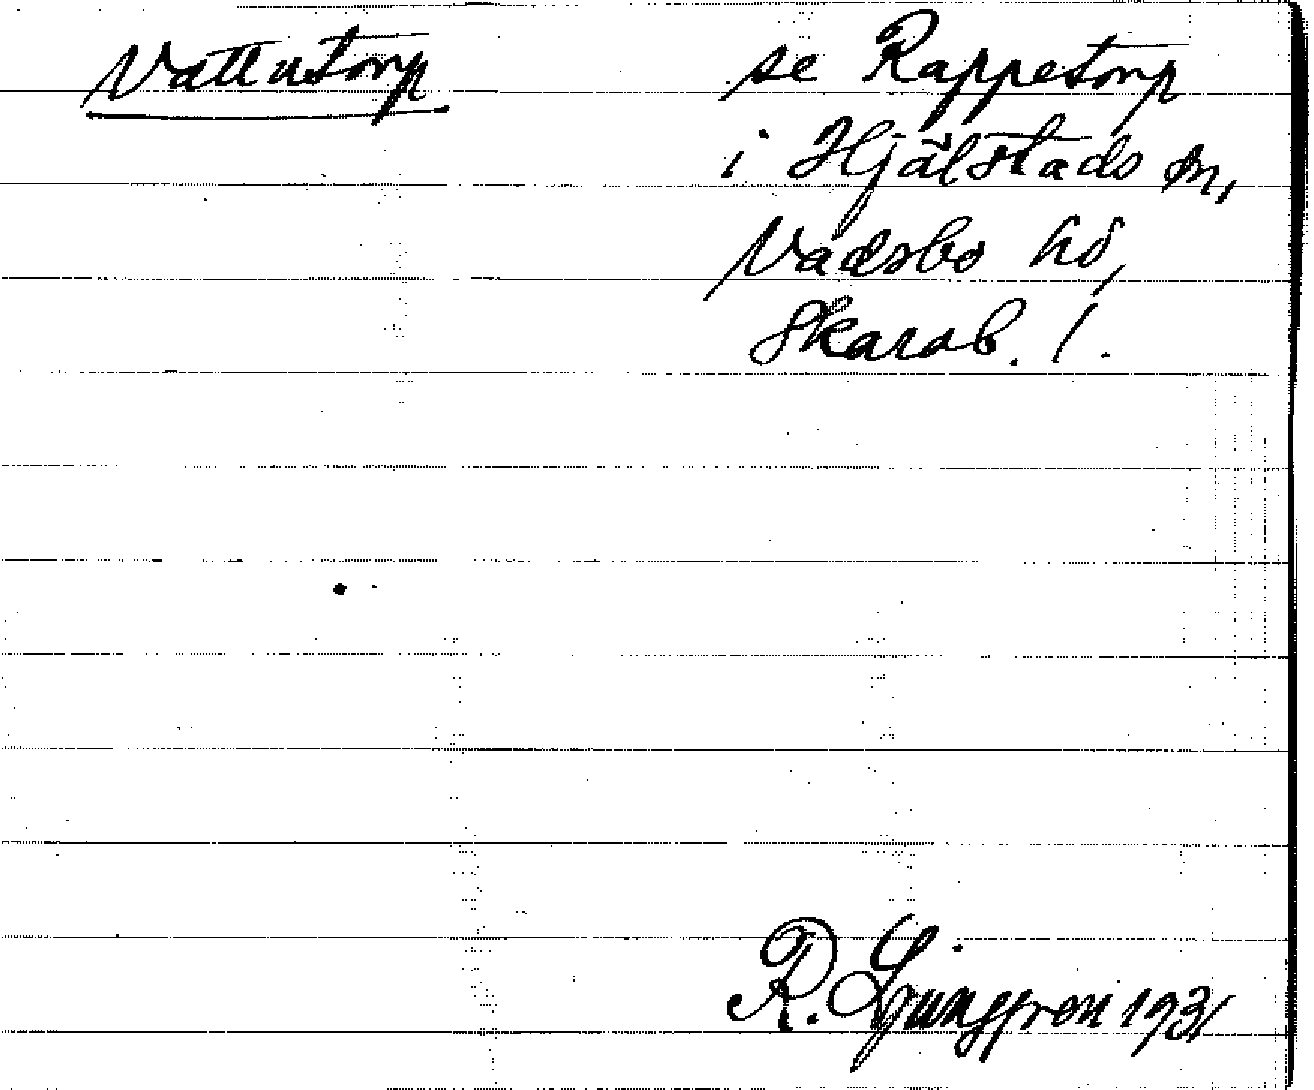 Vattutorp
se Rappetorp
i Hjälstads sn,
Vadsbo hd,
Skarab. l.
R. Ljunggren 1931